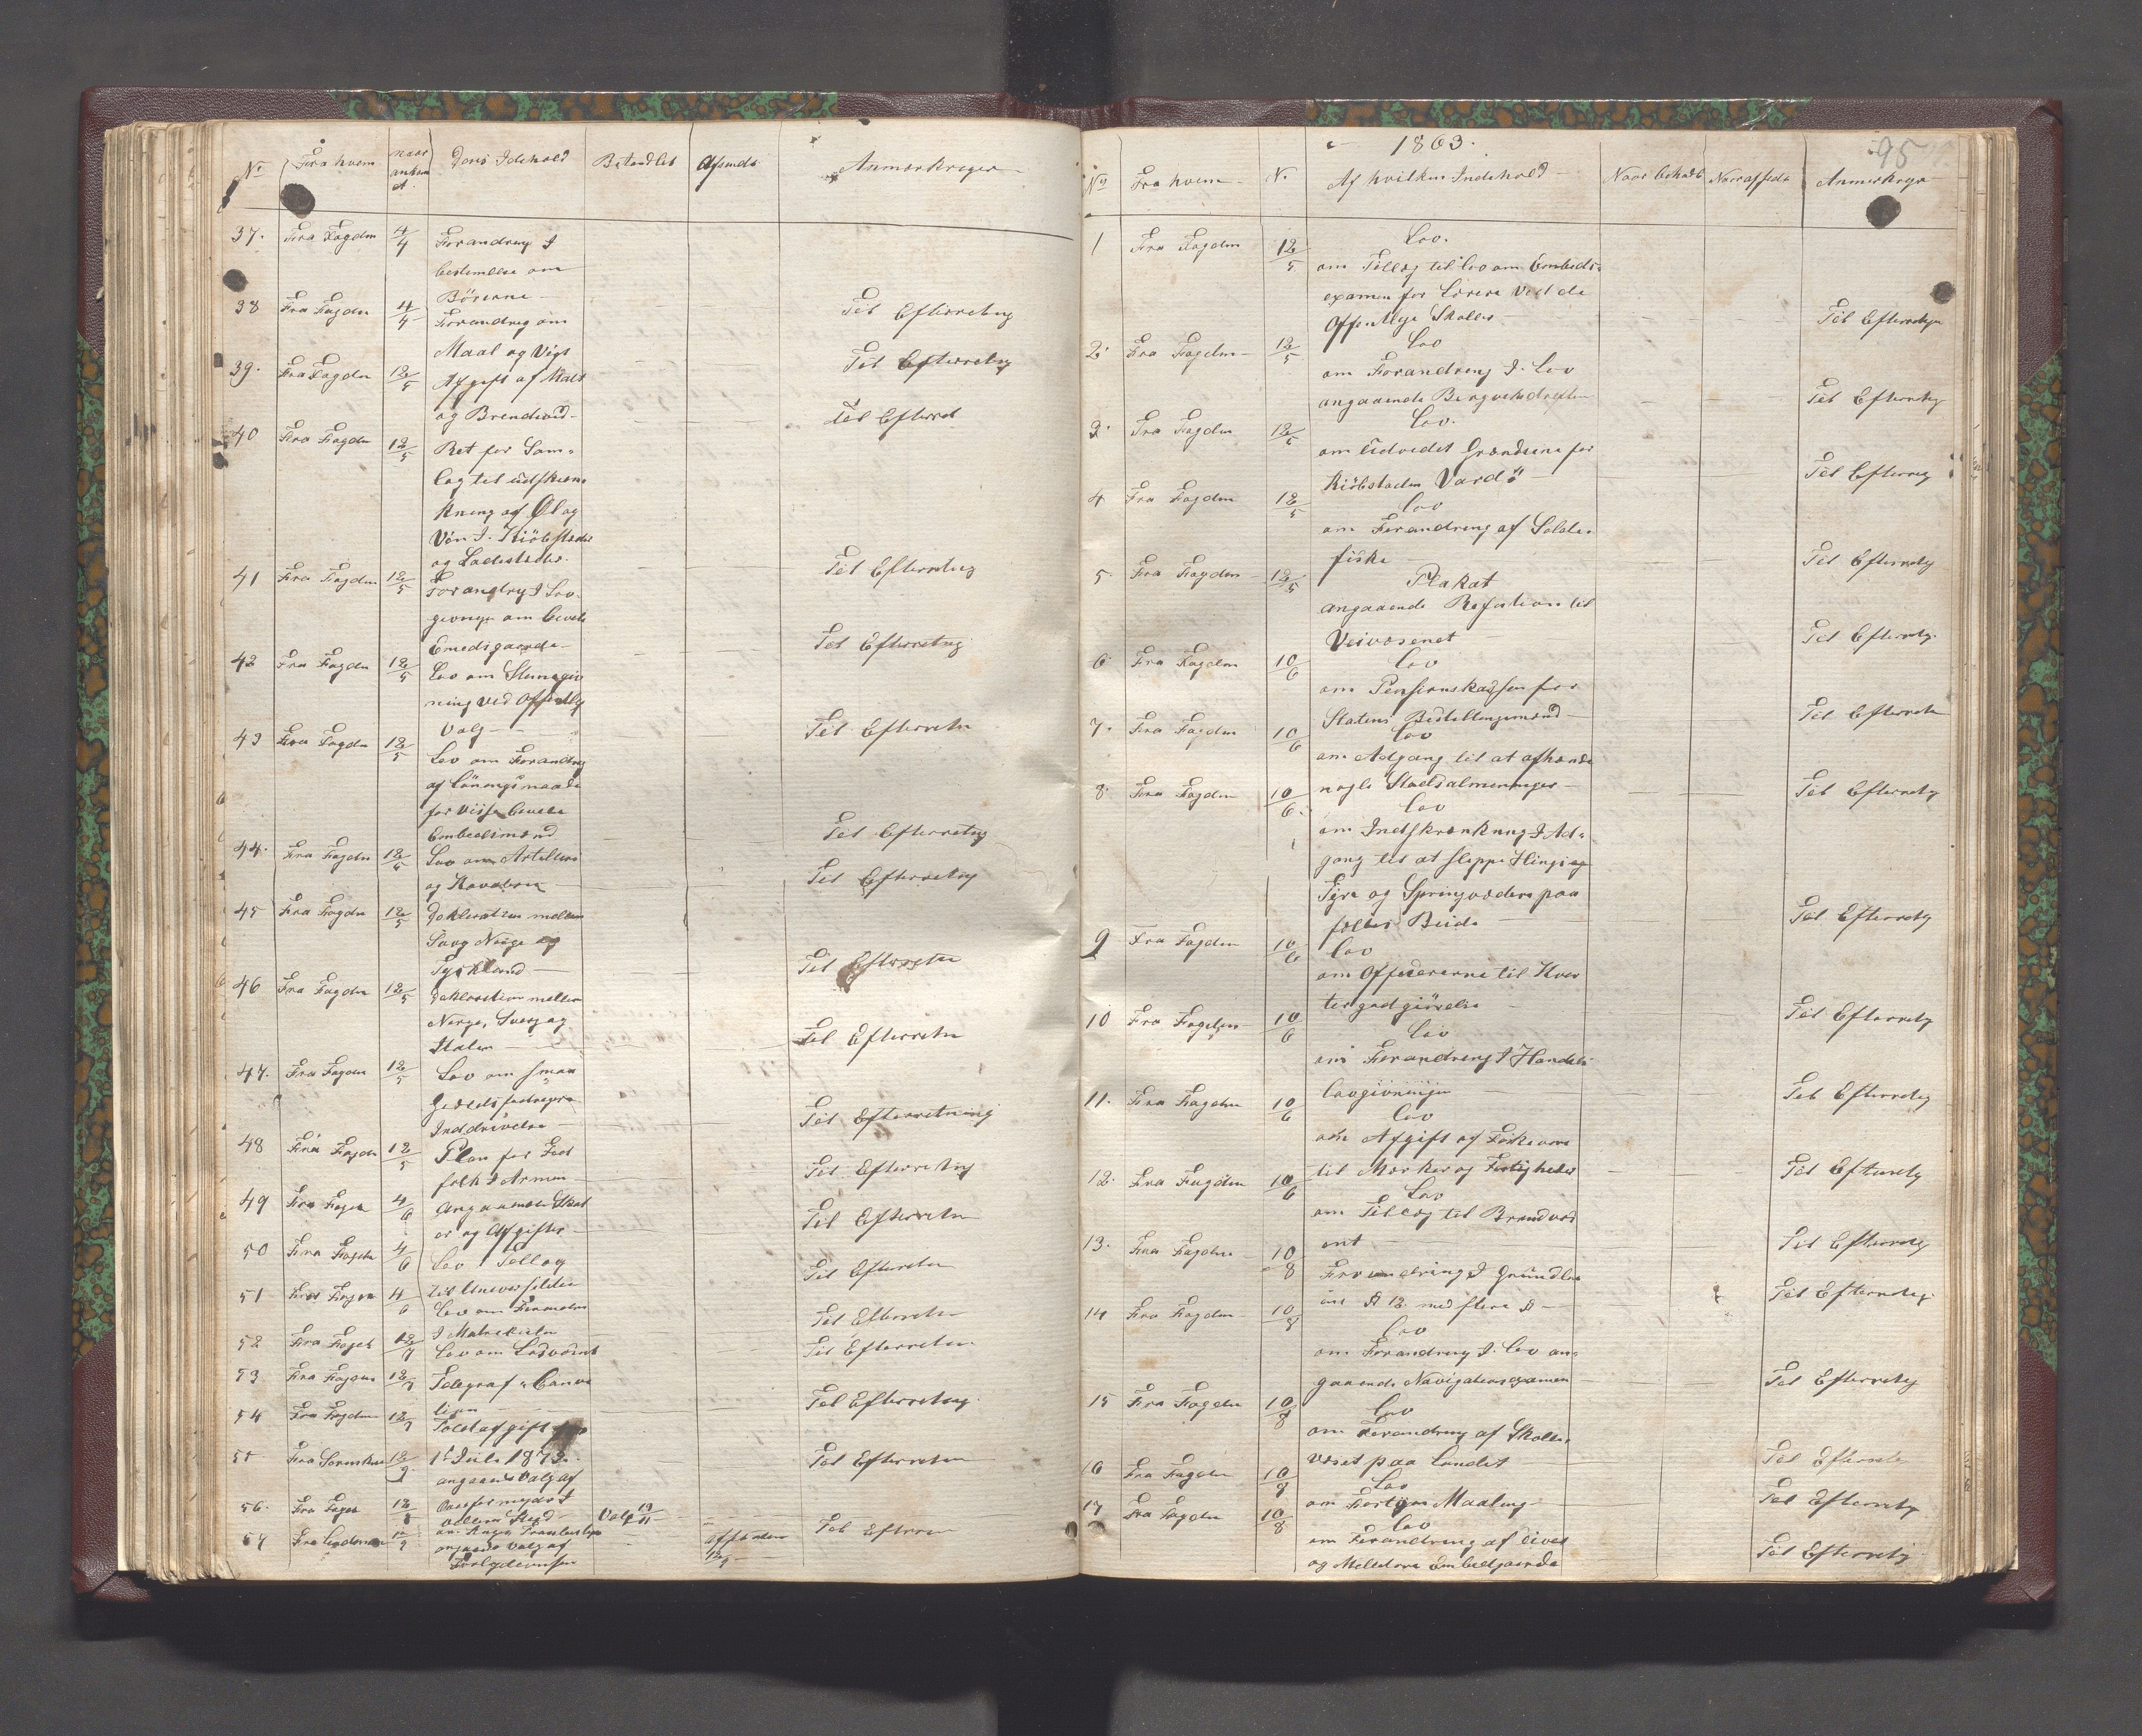 No Fra hvem naar ankom Deris Idehold Behandlet Afsendt Anmærkniger
37. Fra Fogden 4/4 Forandreng I
bestemelse om
Börserne —
38 Fra Fogden 4/4 Forandreg om Til Efterretnig
Maal og Vegt
39. Fra Fogden 12/5 Afgift af Malt Til Efterretnig
og Brendeved —
40 Fra Fogden 12/5 Ret for Sam= Til Efterret
lag til udskiæn
kning af Øl og
Vin I. Kiöbsteder
og Ladesteder.
41 Fra Fogden 12/5 Forandrg I Lov= Til Efterretnig
givnige om Civile
Emedsgaarde —
42 Fra Fogden 12/5 Lov om Stemegiv Til Efterretnig
ning ved Offentlig
Valg —
43 Fra Fogden 12/5 Lov om Forandreg Til Efterretn
af Löningsmaade
for visse Civile
Embedsmænd
44. Fra Fogden 12/5 Lov om Artilleri Til Efterretnig
og Kavaleri — Til Efterretnig
45 Fra Fogden 12/5 Deklaration mellem
Sverg Norge og
Tyskland — Til Efterretn
46 Fra Fogden 12/5 Deklaration mellem
Norge, Sverg og
Italen — Til Efterretn
47. Fra Fogden 12/5 Lov om smaa
Gieldsfordregers
Inddrivelse — Til Efterretning
48 Fra Fogden 12/5 Plan for Fod
folk I Armen — Til Efterretnig
49 Fra Foged 4/6 Angaaende Skat
er og Afgifter — Til Efterretn
50 Fra Fogden 4/6 Lov Tillæg
til Universitetet Til Efterretn
51 Fra Fogden 4/6 Lov om Forandren
I Matrikulen Til Efterretn
52 Fra Foged 12/7 Lov om Lodsvæsnet Til Efterretn
53 Fra Fogden 12/7 Telegraf =
Til Efterretnig
54 Fra Fogden 12/7 Toldafgift fra
1te Juli 1873.
55 Fra 12/9 angaaende Valg af Til Efterretn
56. Fra Foged 12/8 Valg 19/11
57 Fra 12/9 angaaende Valg af afsendte 12/9 Til Efterre
1863. 95
No Fra hvem — N. Af hvilken Indehold — Naar behandl Naar afsendt Anmerknger
1 Fra Fogden 12/5 Lov.
om Tillæg til Lov om Embeds=
examen for Lærere ved de
Offentlige Skoller — Til Efterretnge
2. Fra Fogden — 12/5 Lov
om Forandreng I. Lov
angaaende Bergverksdriften Til Efterretnig
3. Fra Fogden 12/5 Lov.
om Udvedet Grændserne for
Kiöbstaden Vardö — Til Efterretnig
4 Fra Fogden 12/5 Lov
om Forandreng af Silde=
fiske — Til Efterretnig
5. Fra Fogden — 12/5 Plakat
angaaende Refution til
Veivæsenet — Til Efterretnig.
6. Fra Fogden 10/6 Lov
om Pensionskassen for
Statens Bestillingsmænd — Til Efterretn
7. Fra Fogden 10/6 Lov
om Adgang til at afhænde
nogle Stadsalmeninger — Til Efterretnig
8. Fra Fogden 10/6 Lov
om Indskrænkning I Ad=
gang til at sleppe Hingst og
Tyre og Springvædere paa
fælles Beide — Til Efterretnig
9 Fra Fogden 10/6 Lov
om Offecererne til Kvar
tergodgiörelse — Til Efterretnig
10 Fra Fogden — 10/6 Lov
om Forandreng I Handels=
lovgivningen — Til Efterretnig
11. Fra Fogden 10/6 Lov
om Afgift af Fiskevare
til Mærker og Festigheder Til Efterretnig
12. Fra Fogden 10/6 Lov
om Tillæg til Brandvæs
ent — Til Efterretnig
13. Fra Fogden — 10/8 Forandring I Grundlo
ven § 12. med flere § — Til Efterretnig
14 Fra Fogden — 10/8 Lov
om Forandreng I. Lov an=
gaaende Navigationsexamen — Til Efterretnig
15 Fra Fogden 10/8 Lov
om Forandreng af Skole=
væset paa Landet Til Efterretn
16 Fra Fogden 10/8 Lov
om Fartöjers Maaling — Til Efterretnig
17 Fra Fogden 10/8 Lov
om Forandreng af Civel
og Melletære Embedgaarde Til Efterretnig